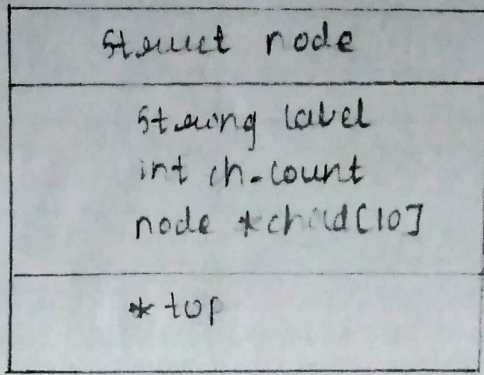 Struct node
String label
int ch_count
node *child[10]
* top